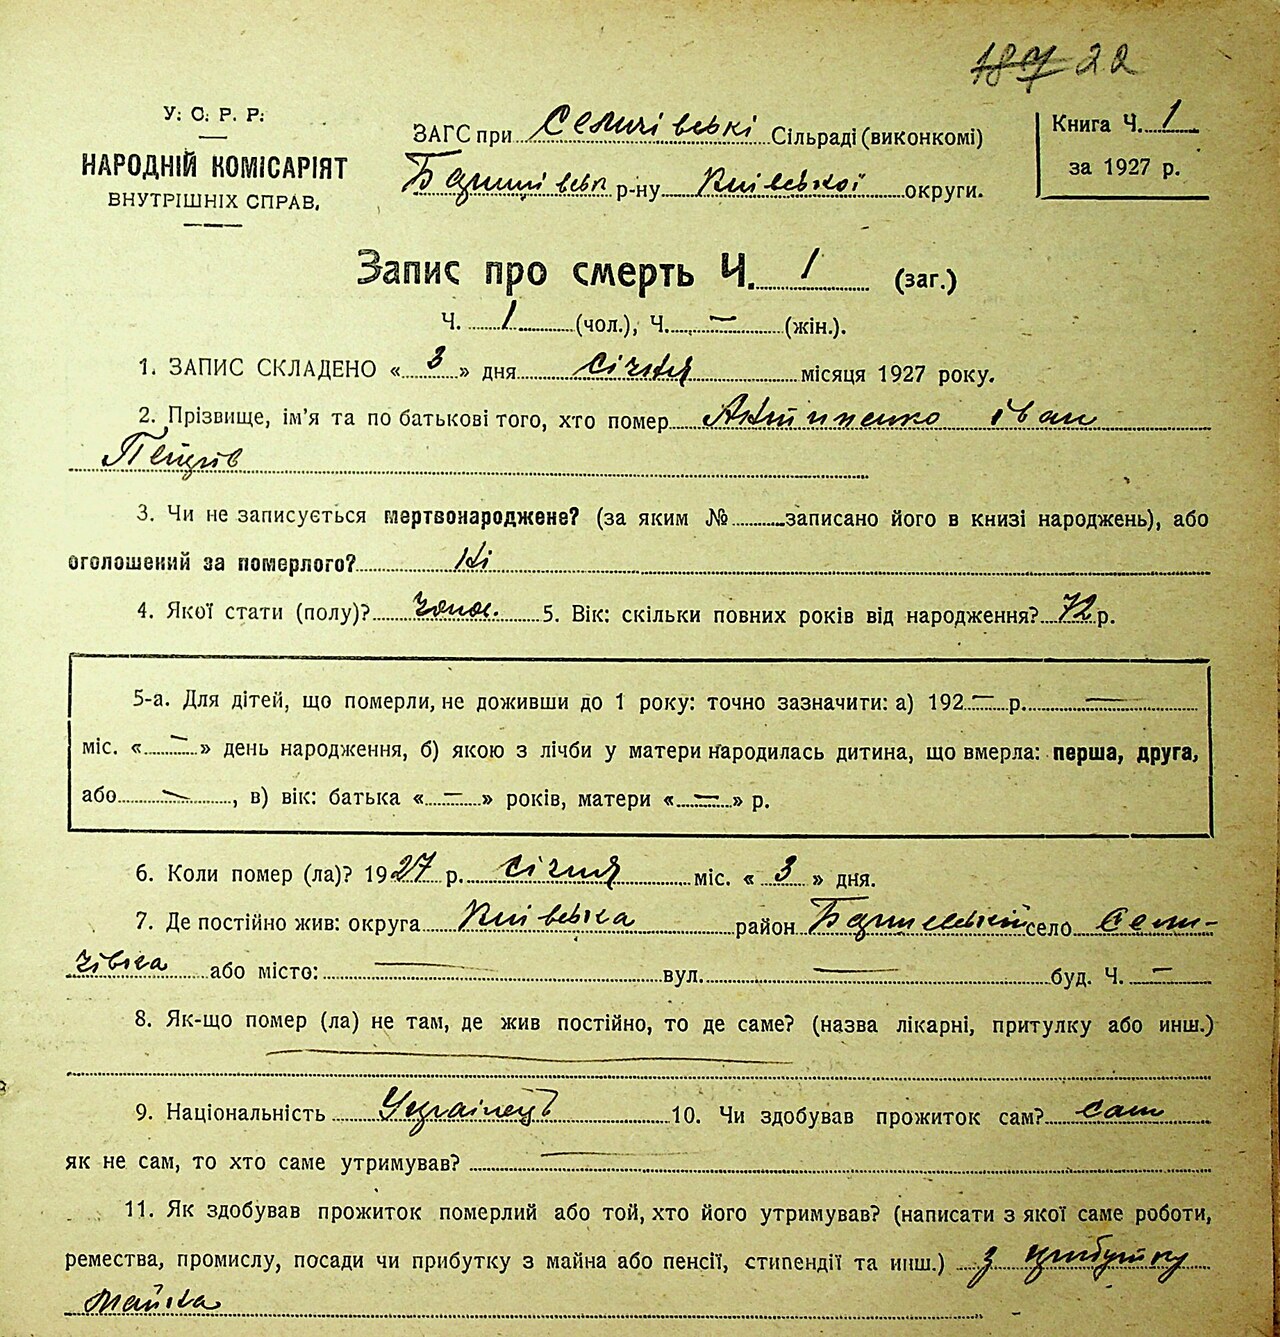 187 22
У. С. Р. Р.
НАРОДНІЙ КОМІСАРІЯТ
ВНУТРІШНІХ СПРАВ.
ЗАГС при Семичівські Сільраді (виконкомі)
р-ну Київської округи.
Книга Ч. 1
за 1927 р.
Запис про смерть Ч. 1 (заг.)
Ч. 1 (чол.), Ч. — (жін.).
1. ЗАПИС СКЛАДЕНО « 3 » дня січня місяця 1927 року.
2. Прізвище, ім'я та по батькові того, хто помер Антипенко Іван
Петрів
3. Чи не записується мертвонароджене? (за яким № записано його в книзі народжень), або
оголошений за померлого? Ні
4. Якої стати (полу)? чолов. 5. Вік: скільки повних років від народження? 72 р.
5-а. Для дітей, що померли, не доживши до 1 року: точно зазначити: а) 192 — р. —
міс. « — » день народження, б) якою з лічби у матери народилась дитина, що вмерла: перша, друга,
або — , в) вік: батька « — » років, матери « — » р.
6. Коли помер (ла)? 1927 р. січня міс. « 3 » дня.
7. Де постійно жив: округа Київська район село Семи-
чівка або місто: — вул. — буд. Ч. —
8. Як-що помер (ла) не там, де жив постійно, то де саме? (назва лікарні, притулку або инш.)
—
9. Національність Українець 10. Чи здобував прожиток сам? сам
як не сам, то хто саме утримував? —
11. Як здобував прожиток померлий або той, хто його утримував? (написати з якої саме роботи,
ремества, промислу, посади чи прибутку з майна або пенсії, стипендії та инш.) з прибутку
майна